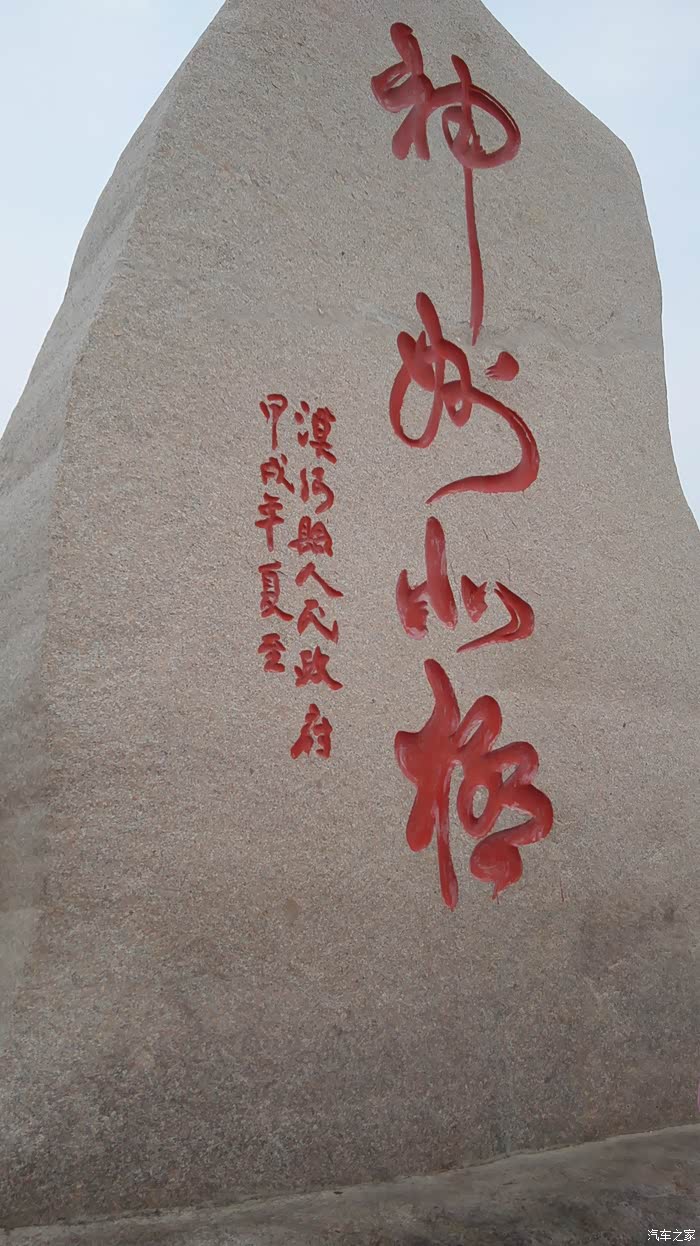 神州北极
漠河县人民政府
甲戌年夏至
汽车之家